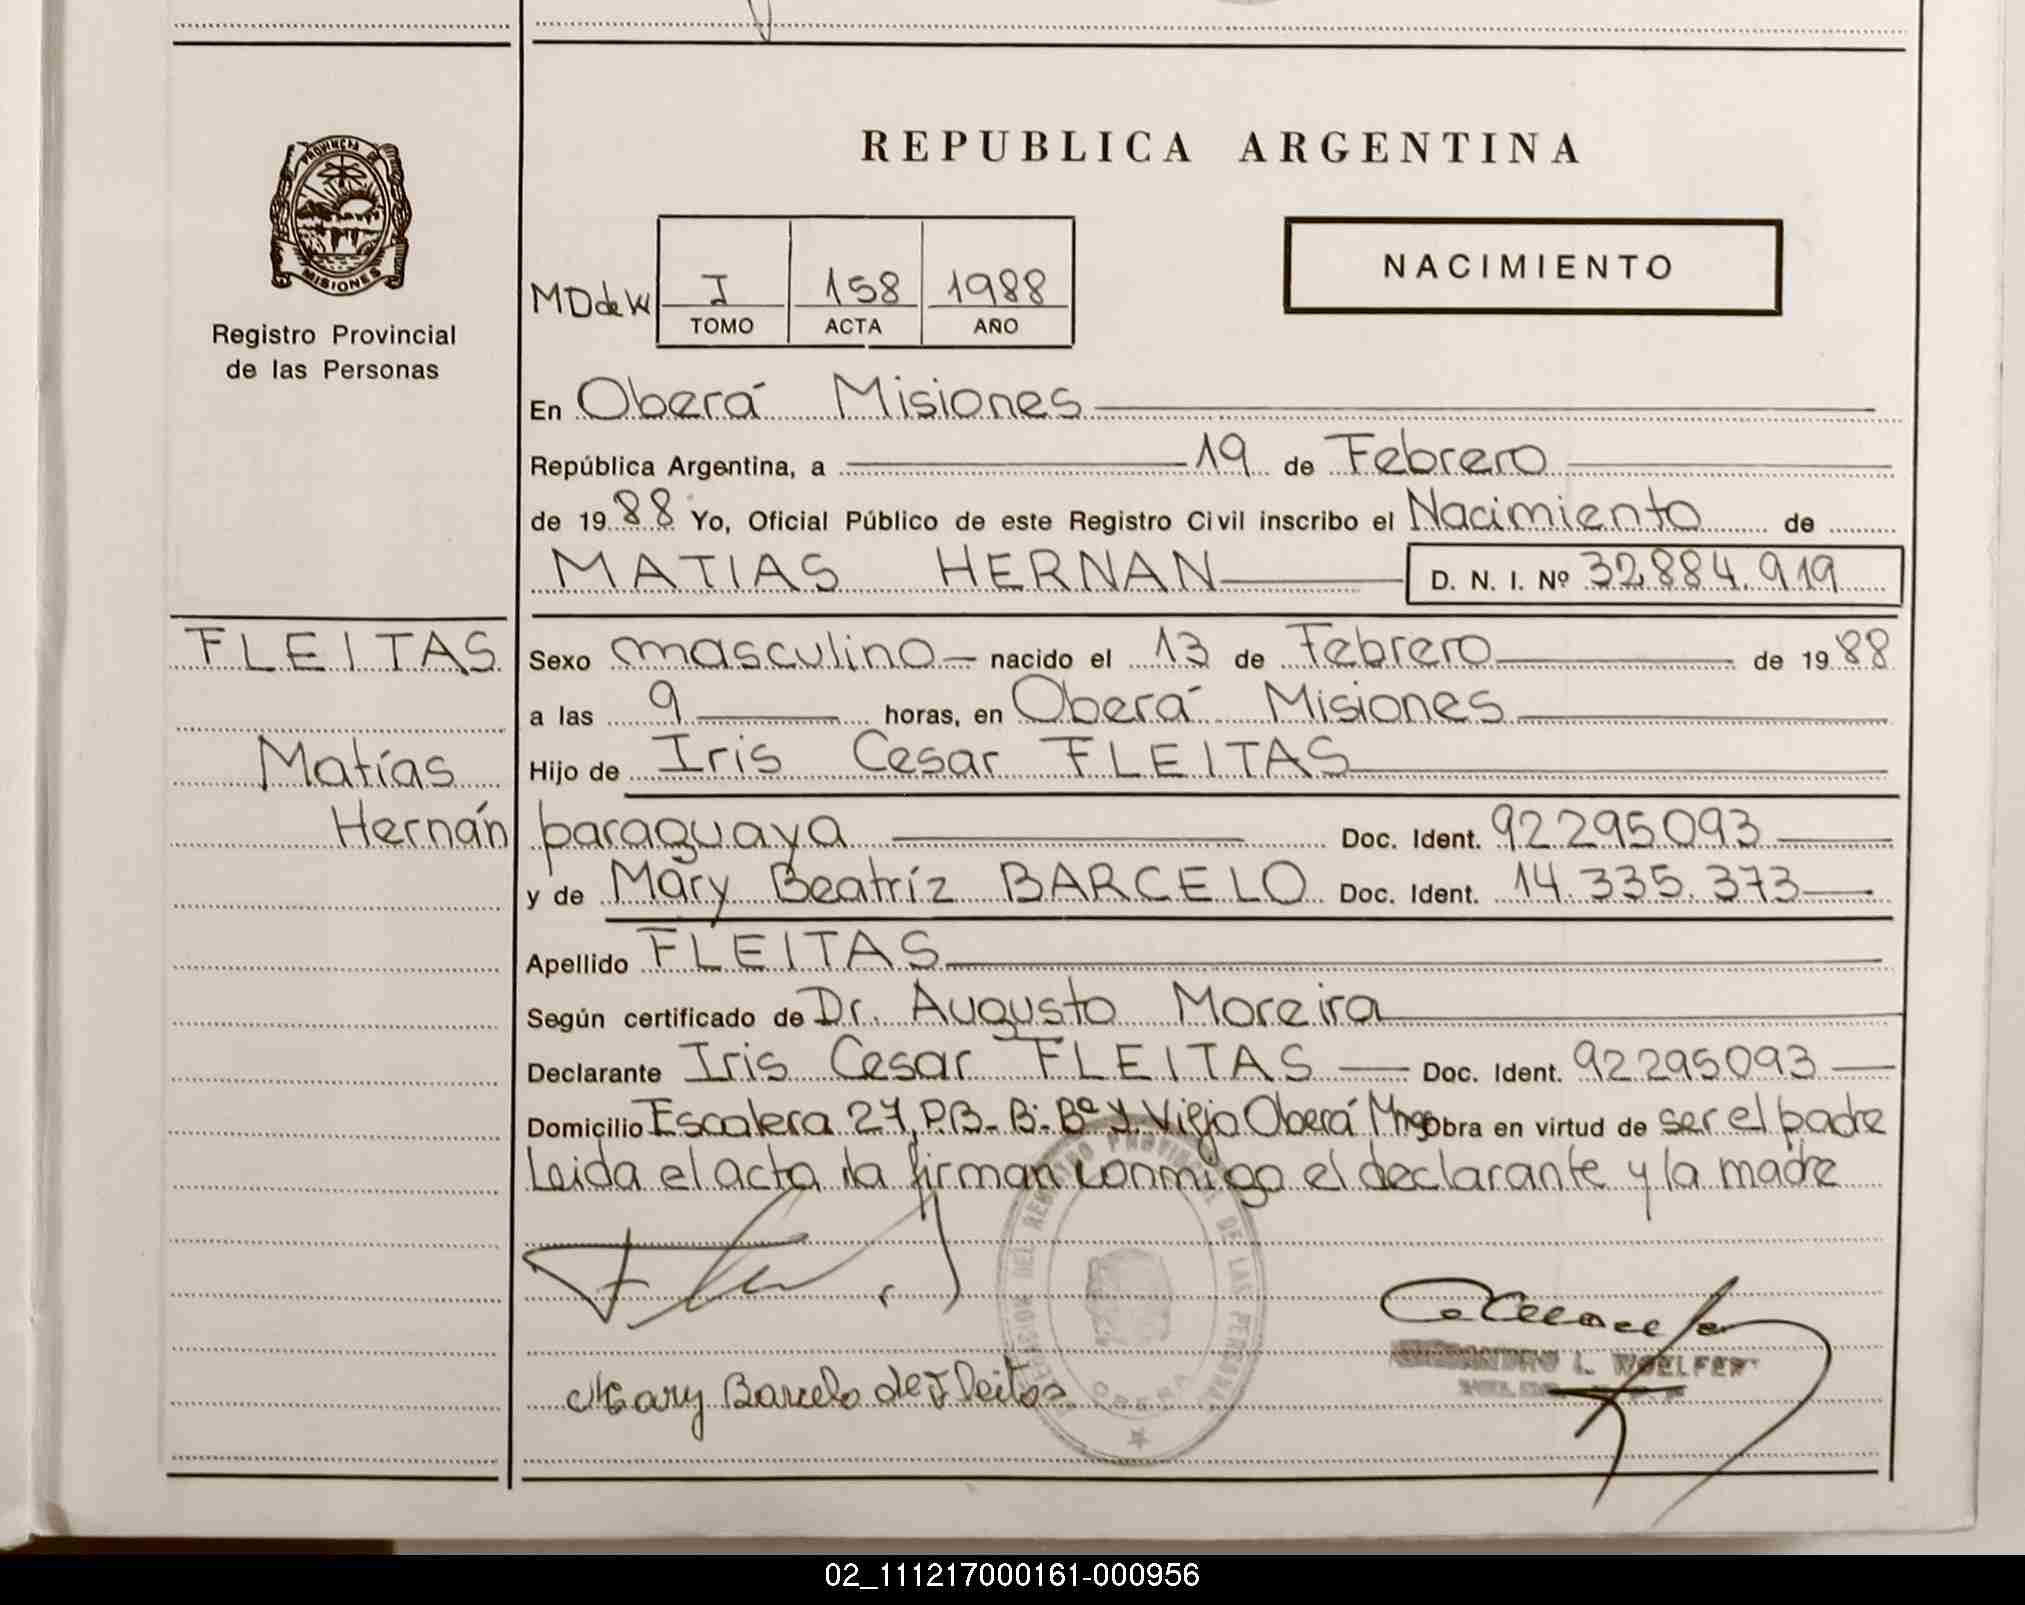 PROVINCIA DE
MISIONES
Registro Provincial
de las Personas
REPUBLICA ARGENTINA
NACIMIENTO
MD de W I 158 1988
TOMO ACTA AÑO
En Oberá Misiones
República Argentina, a 19 de Febrero
de 1988 Yo, Oficial Público de este Registro Civil inscribo el Nacimiento de
MATIAS HERNAN D. N. I. Nº 32.884.919
FLEITAS
Matías
Hernán
Sexo masculino nacido el 13 de Febrero de 1988
a las 9 horas, en Oberá Misiones
Hijo de Iris Cesar FLEITAS
paraguaya Doc. Ident. 92295093
y de Mary Beatríz BARCELO Doc. Ident. 14.335.373
Apellido FLEITAS
Según certificado de Dr. Augusto Moreira
Declarante Iris Cesar FLEITAS Doc. Ident. 92295093
Domicilio Escalera 27, P.B. B: Bº Y. Viejo Oberá Mnes Obra en virtud de ser el padre
Leida el acta la firman conmigo el declarante y la madre
REGISTRO PROVINCIAL DE LAS PERSONAS
OBERA
Mary Barcelo de Fleitas
L. WOELFERT
02_111217000161-000956